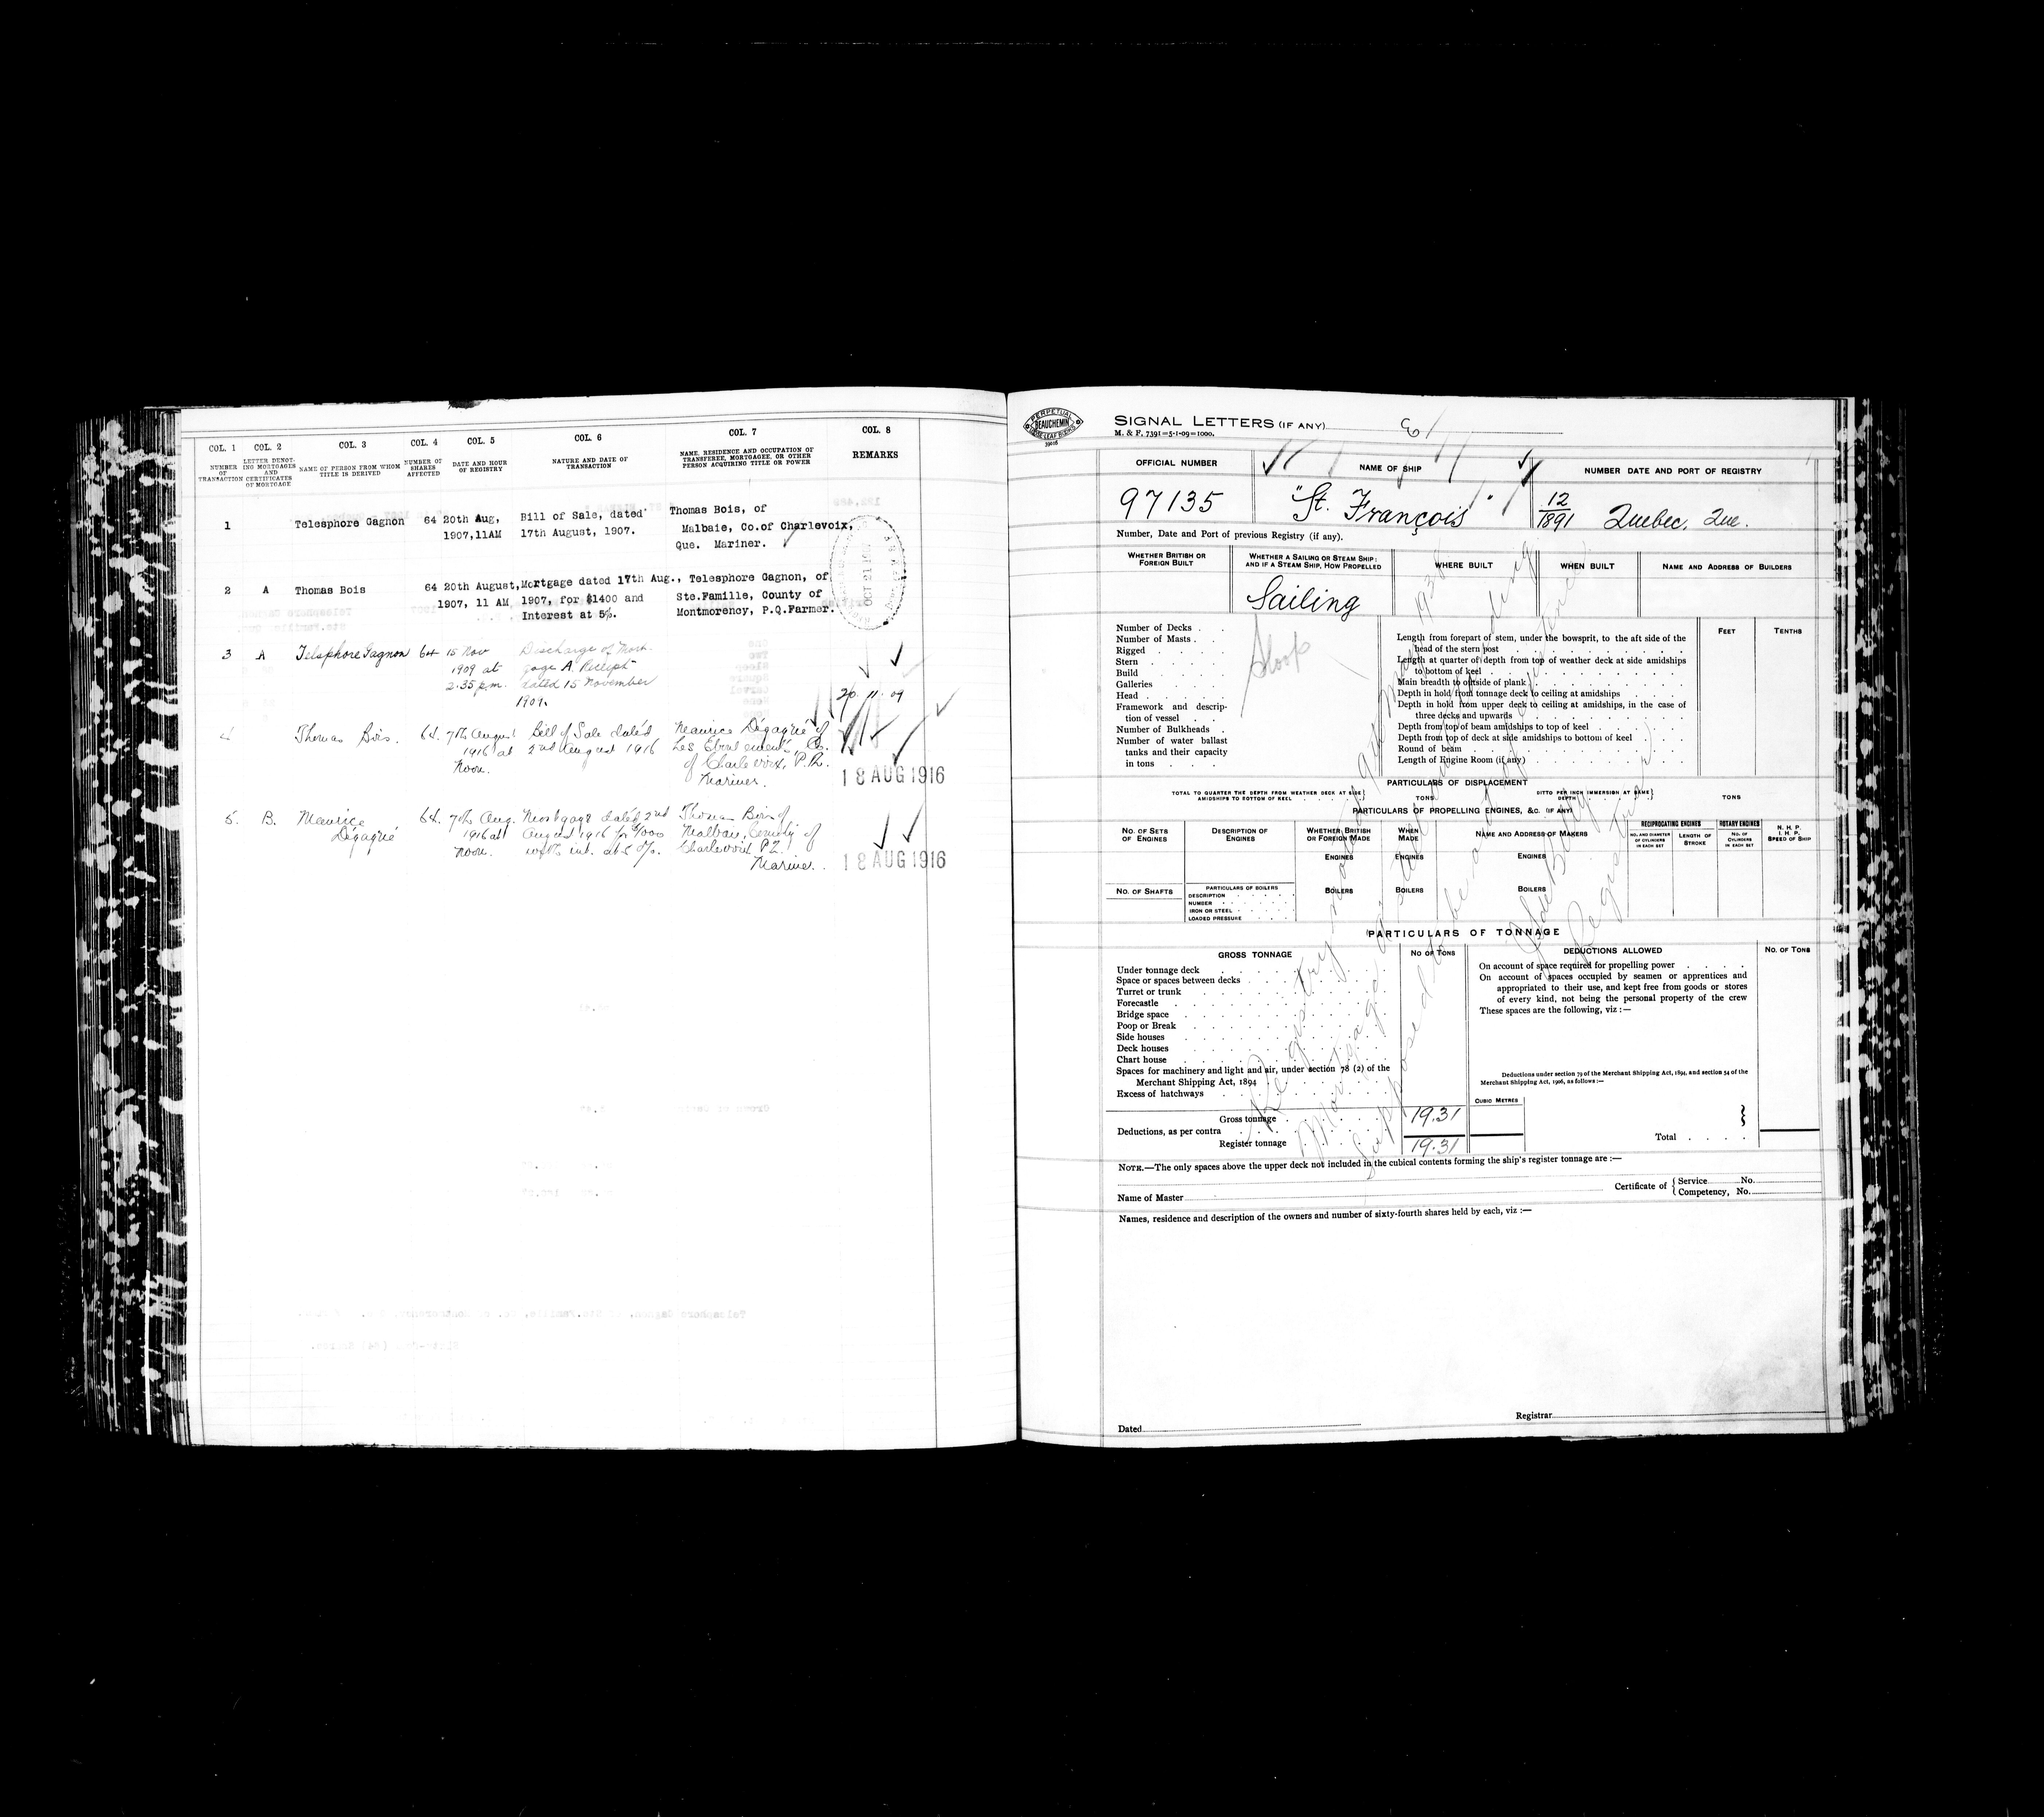 COL. 1
NUMBER OF TRANSACTION
COL. 2
LETTER DENOTING MORTGAGES AND CERTIFICATES OF MORTGAGE
COL. 3
NAME OF PERSON FROM WHOM TITLE IS DERIVED
COL. 4
NUMBER OF SHARES AFFECTED
COL. 5
DATE AND HOUR OF REGISTRY
COL. 6
NATURE AND DATE OF TRANSACTION
COL. 7
NAME, RESIDENCE AND OCCUPATION OF TRANSFEREE, MORTGAGEE, OR OTHER PERSON ACQUIRING TITLE OR POWER
COL. 8
REMARKS
1
Telesphore Gagnon
64
20th Aug,
1907, 11AM
Bill of Sale, dated
17th August, 1907.
Thomas Bois, of
Malbaie, Co.of Charlevoix,
Que. Mariner.
OCT 21 1907
2
A
Thomas Bois
64
20th August,
1907, 11 AM
Mortgage dated 17th Aug.,
1907, for $1400 and
Interest at 5%.
Telesphore Gagnon, of
Ste.Famille, County of
Montmorency, P.Q.Farmer.
3
A
Telesphore Gagnon
64
15 Nov
1909 at
2.35 p.m.
Discharge of Mort-
gage A Receipt
dated 15 November
1909.
20.11.09
4
Thomas Bois.
64.
7th August
1916 at
Noon.
Bill of Sale dated
2nd August 1916
Maurice Dégagné of
Les Eboulements, Co.
of Charlevoix, P.Q.
Mariner.
18 AUG 1916
5.
B.
Maurice
Dégagné
64.
7th Aug.
1916 at
Noon.
Mortgage dated 2nd
August 1916 for $1000
with int. at 5 %.
Thomas Bois of
Malbaie, County of
Charlevoix P.Q.
Mariner.
18 AUG 1916
PERPETUAL
BEAUCHEMIN
LOOSE LEAF BOOKS
SIGNAL LETTERS (IF ANY)
M. & F. 7391=5-1-09=1000.
OFFICIAL NUMBER
NAME OF SHIP
NUMBER DATE AND PORT OF REGISTRY
97135
"St. François"
12/1891 Quebec, Que.
Number, Date and Port of previous Registry (if any).
WHETHER BRITISH OR FOREIGN BUILT
WHETHER A SAILING OR STEAM SHIP: AND IF A STEAM SHIP, HOW PROPELLED
WHERE BUILT
WHEN BUILT
NAME AND ADDRESS OF BUILDERS
Sailing
Number of Decks
Number of Masts
Rigged
Stern
Build
Galleries
Head
Framework and description of vessel
Number of Bulkheads
Number of water ballast tanks and their capacity in tons
Sloop
FEET
TENTHS
Length from forepart of stem, under the bowsprit, to the aft side of the head of the stern post
Length at quarter of depth from top of weather deck at side amidships to bottom of keel
Main breadth to outside of plank
Depth in hold from tonnage deck to ceiling at amidships
Depth in hold from upper deck to ceiling at amidships, in the case of three decks and upwards
Depth from top of beam amidships to top of keel
Depth from top of deck at side amidships to bottom of keel
Round of beam
Length of Engine Room (if any)
PARTICULARS OF DISPLACEMENT
TOTAL TO QUARTER THE DEPTH FROM WEATHER DECK AT SIDE AMIDSHIPS TO BOTTOM OF KEEL
TONS
DITTO PER INCH IMMERSION AT SAME DEPTH
TONS
PARTICULARS OF PROPELLING ENGINES, &C. (IF ANY)
NO. OF SETS OF ENGINES
DESCRIPTION OF ENGINES
WHETHER BRITISH OR FOREIGN MADE
WHEN MADE
NAME AND ADDRESS OF MAKERS
RECIPROCATING ENGINES
NO. AND DIAMETER OF CYLINDERS IN EACH SET
LENGTH OF STROKE
ROTARY ENGINES
NO. OF CYLINDERS IN EACH SET
N. H. P.
I. H. P.
SPEED OF SHIP
ENGINES
ENGINES
ENGINES
NO. OF SHAFTS
PARTICULARS OF BOILERS
DESCRIPTION
NUMBER
IRON OR STEEL
LOADED PRESSURE
BOILERS
BOILERS
BOILERS
PARTICULARS OF TONNAGE
GROSS TONNAGE
NO OF TONS
DEDUCTIONS ALLOWED
NO. OF TONS
Under tonnage deck
Space or spaces between decks
Turret or trunk
Forecastle
Bridge space
Poop or Break
Side houses
Deck houses
Chart house
Spaces for machinery and light and air, under section 78 (2) of the
Merchant Shipping Act, 1894
Excess of hatchways
Gross tonnage
19.31
Deductions, as per contra
Register tonnage
19.31
On account of space required for propelling power
On account of spaces occupied by seamen or apprentices and
appropriated to their use, and kept free from goods or stores
of every kind, not being the personal property of the crew
These spaces are the following, viz :—
Deductions under section 79 of the Merchant Shipping Act, 1894, and section 54 of the
Merchant Shipping Act, 1906, as follows :—
CUBIC METRES
Total
Registry closed 9th May 1938
Mortgage outstanding
Supposed to be out of existence
Registrar
NOTE.—The only spaces above the upper deck not included in the cubical contents forming the ship's register tonnage are :—
Name of Master
Certificate of
Service No.
Competency, No.
Names, residence and description of the owners and number of sixty-fourth shares held by each, viz :—
Dated
Registrar